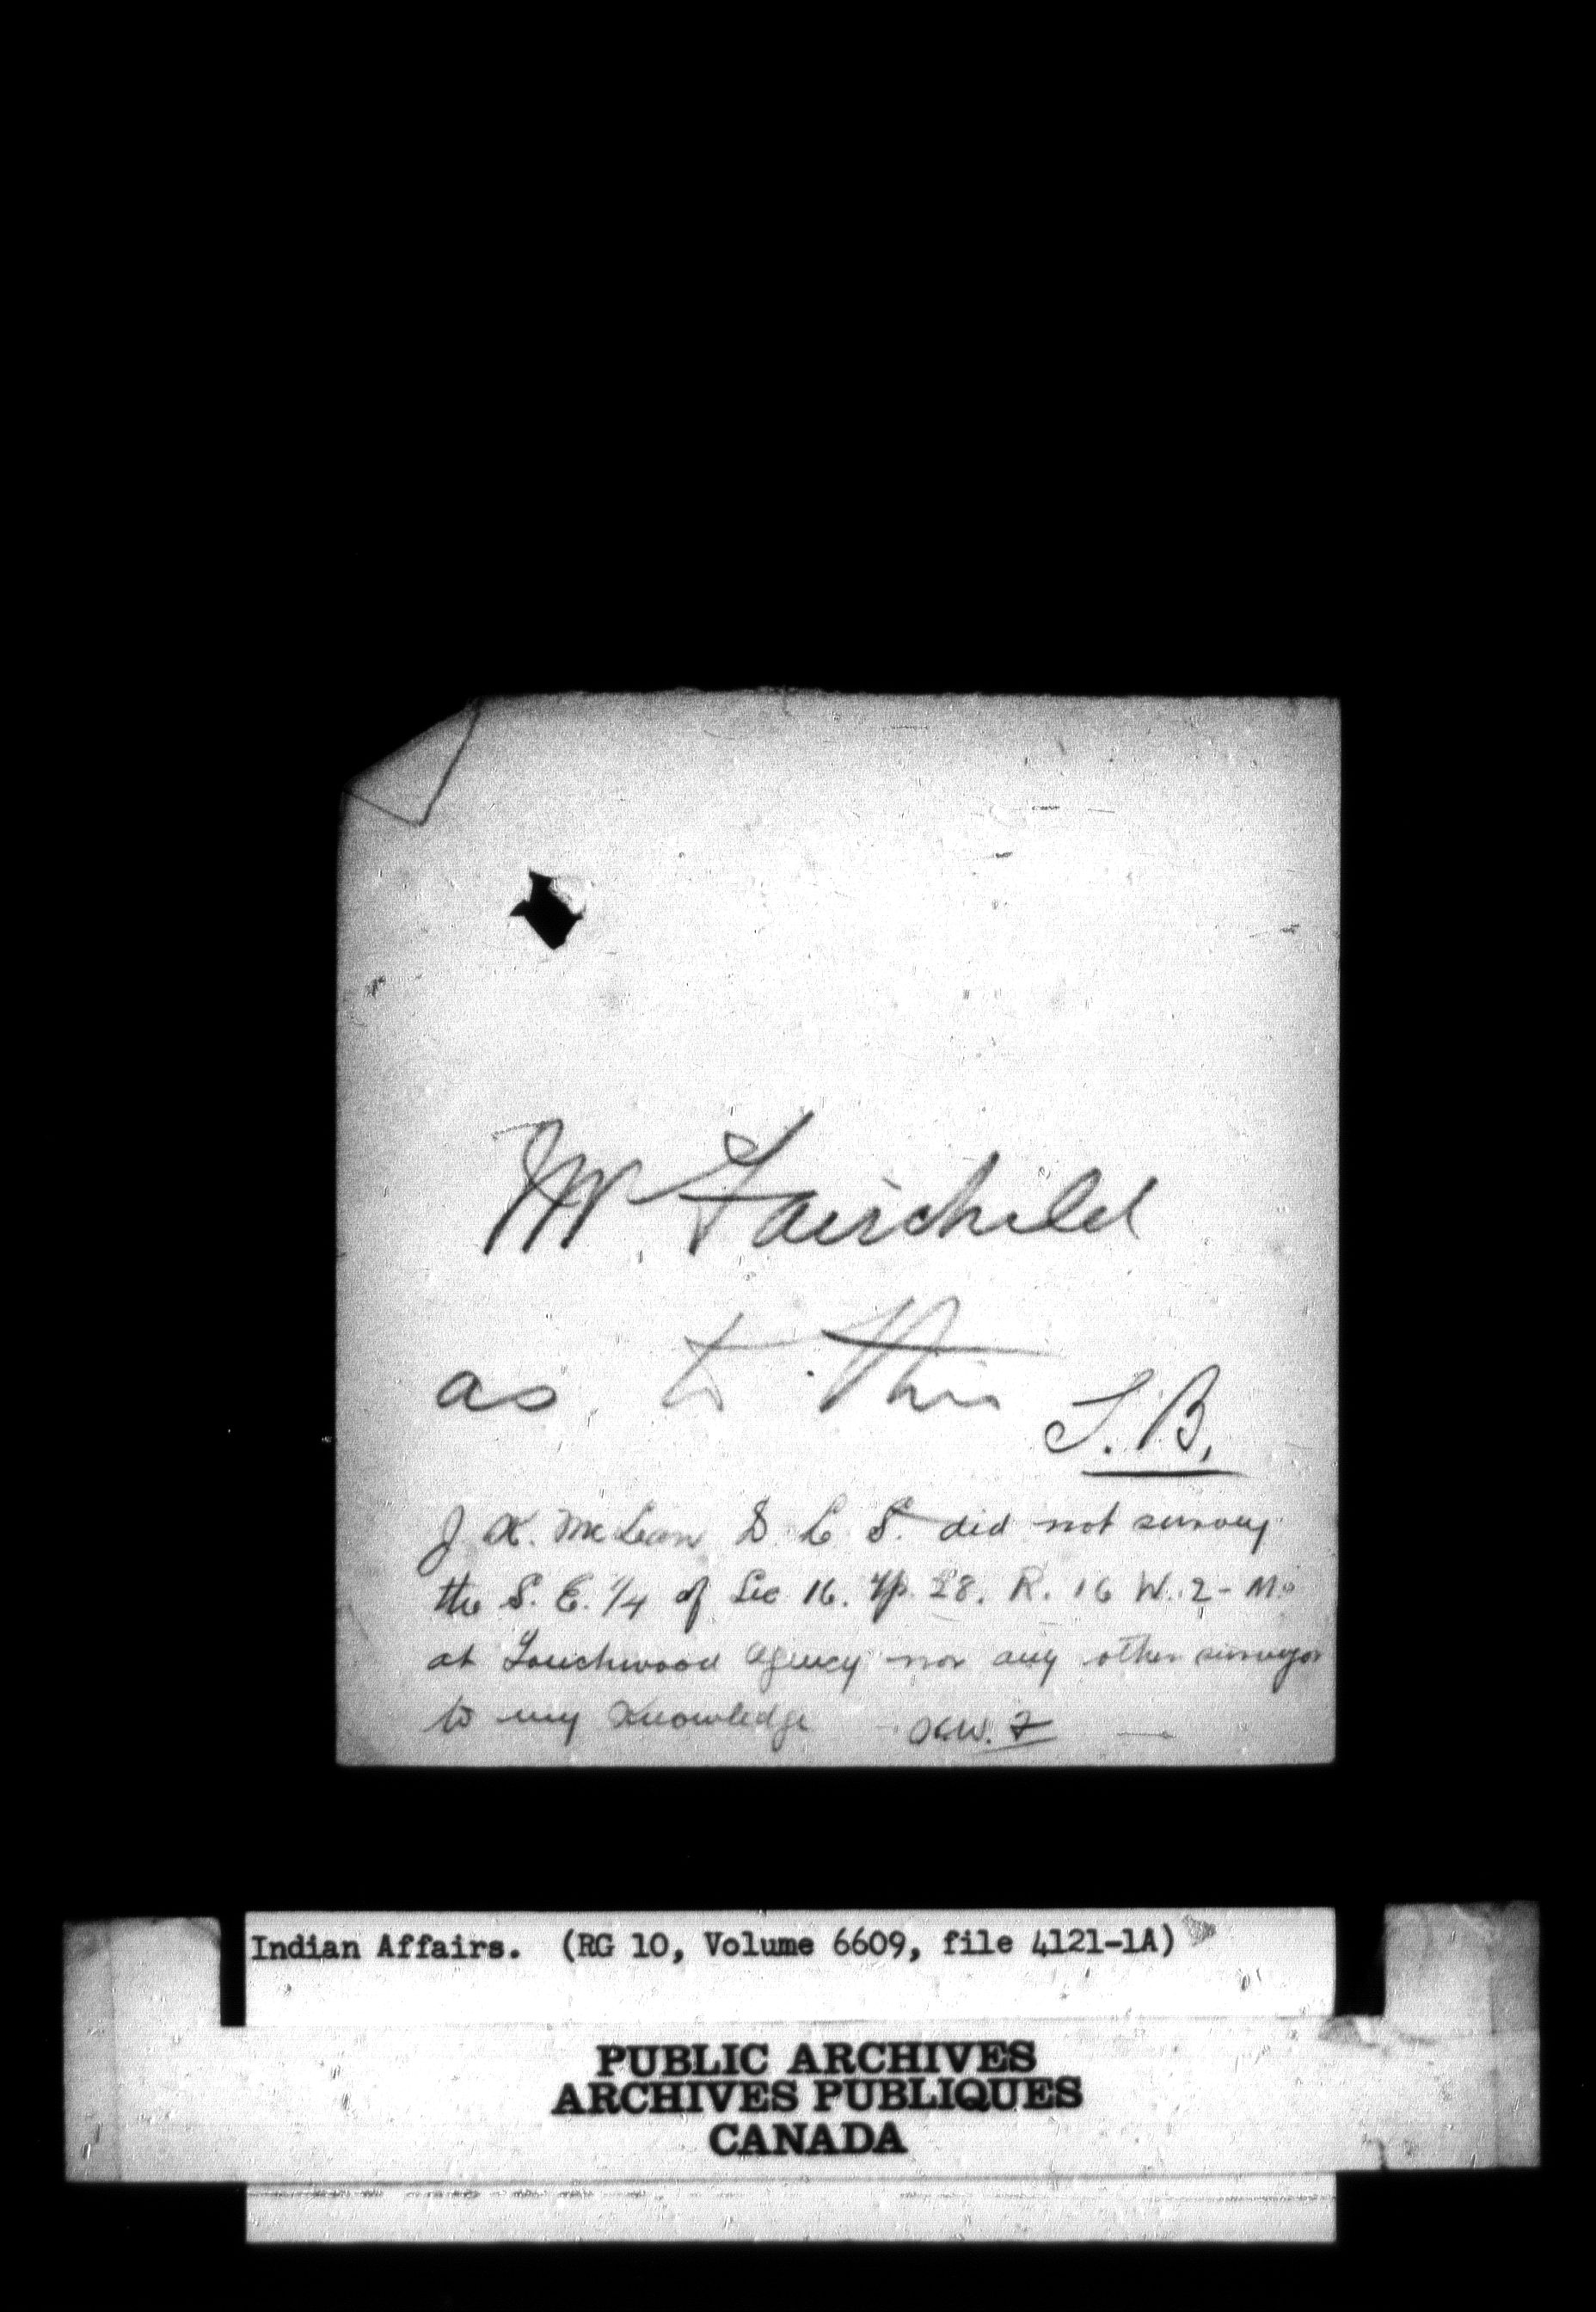 Mr Fairchild
as to this
S.B.
J. K. McLean D. L. S. did not survey
the S. E. 1/4 of Sec 16. Tp. 28. R. 16 W. 2 - M.
at Touchwood Agency nor any other surveyor
to my Knowledge W. F
Indian Affairs. (RG 10, Volume 6609, file 4121-1A)
PUBLIC ARCHIVES
ARCHIVES PUBLIQUES
CANADA